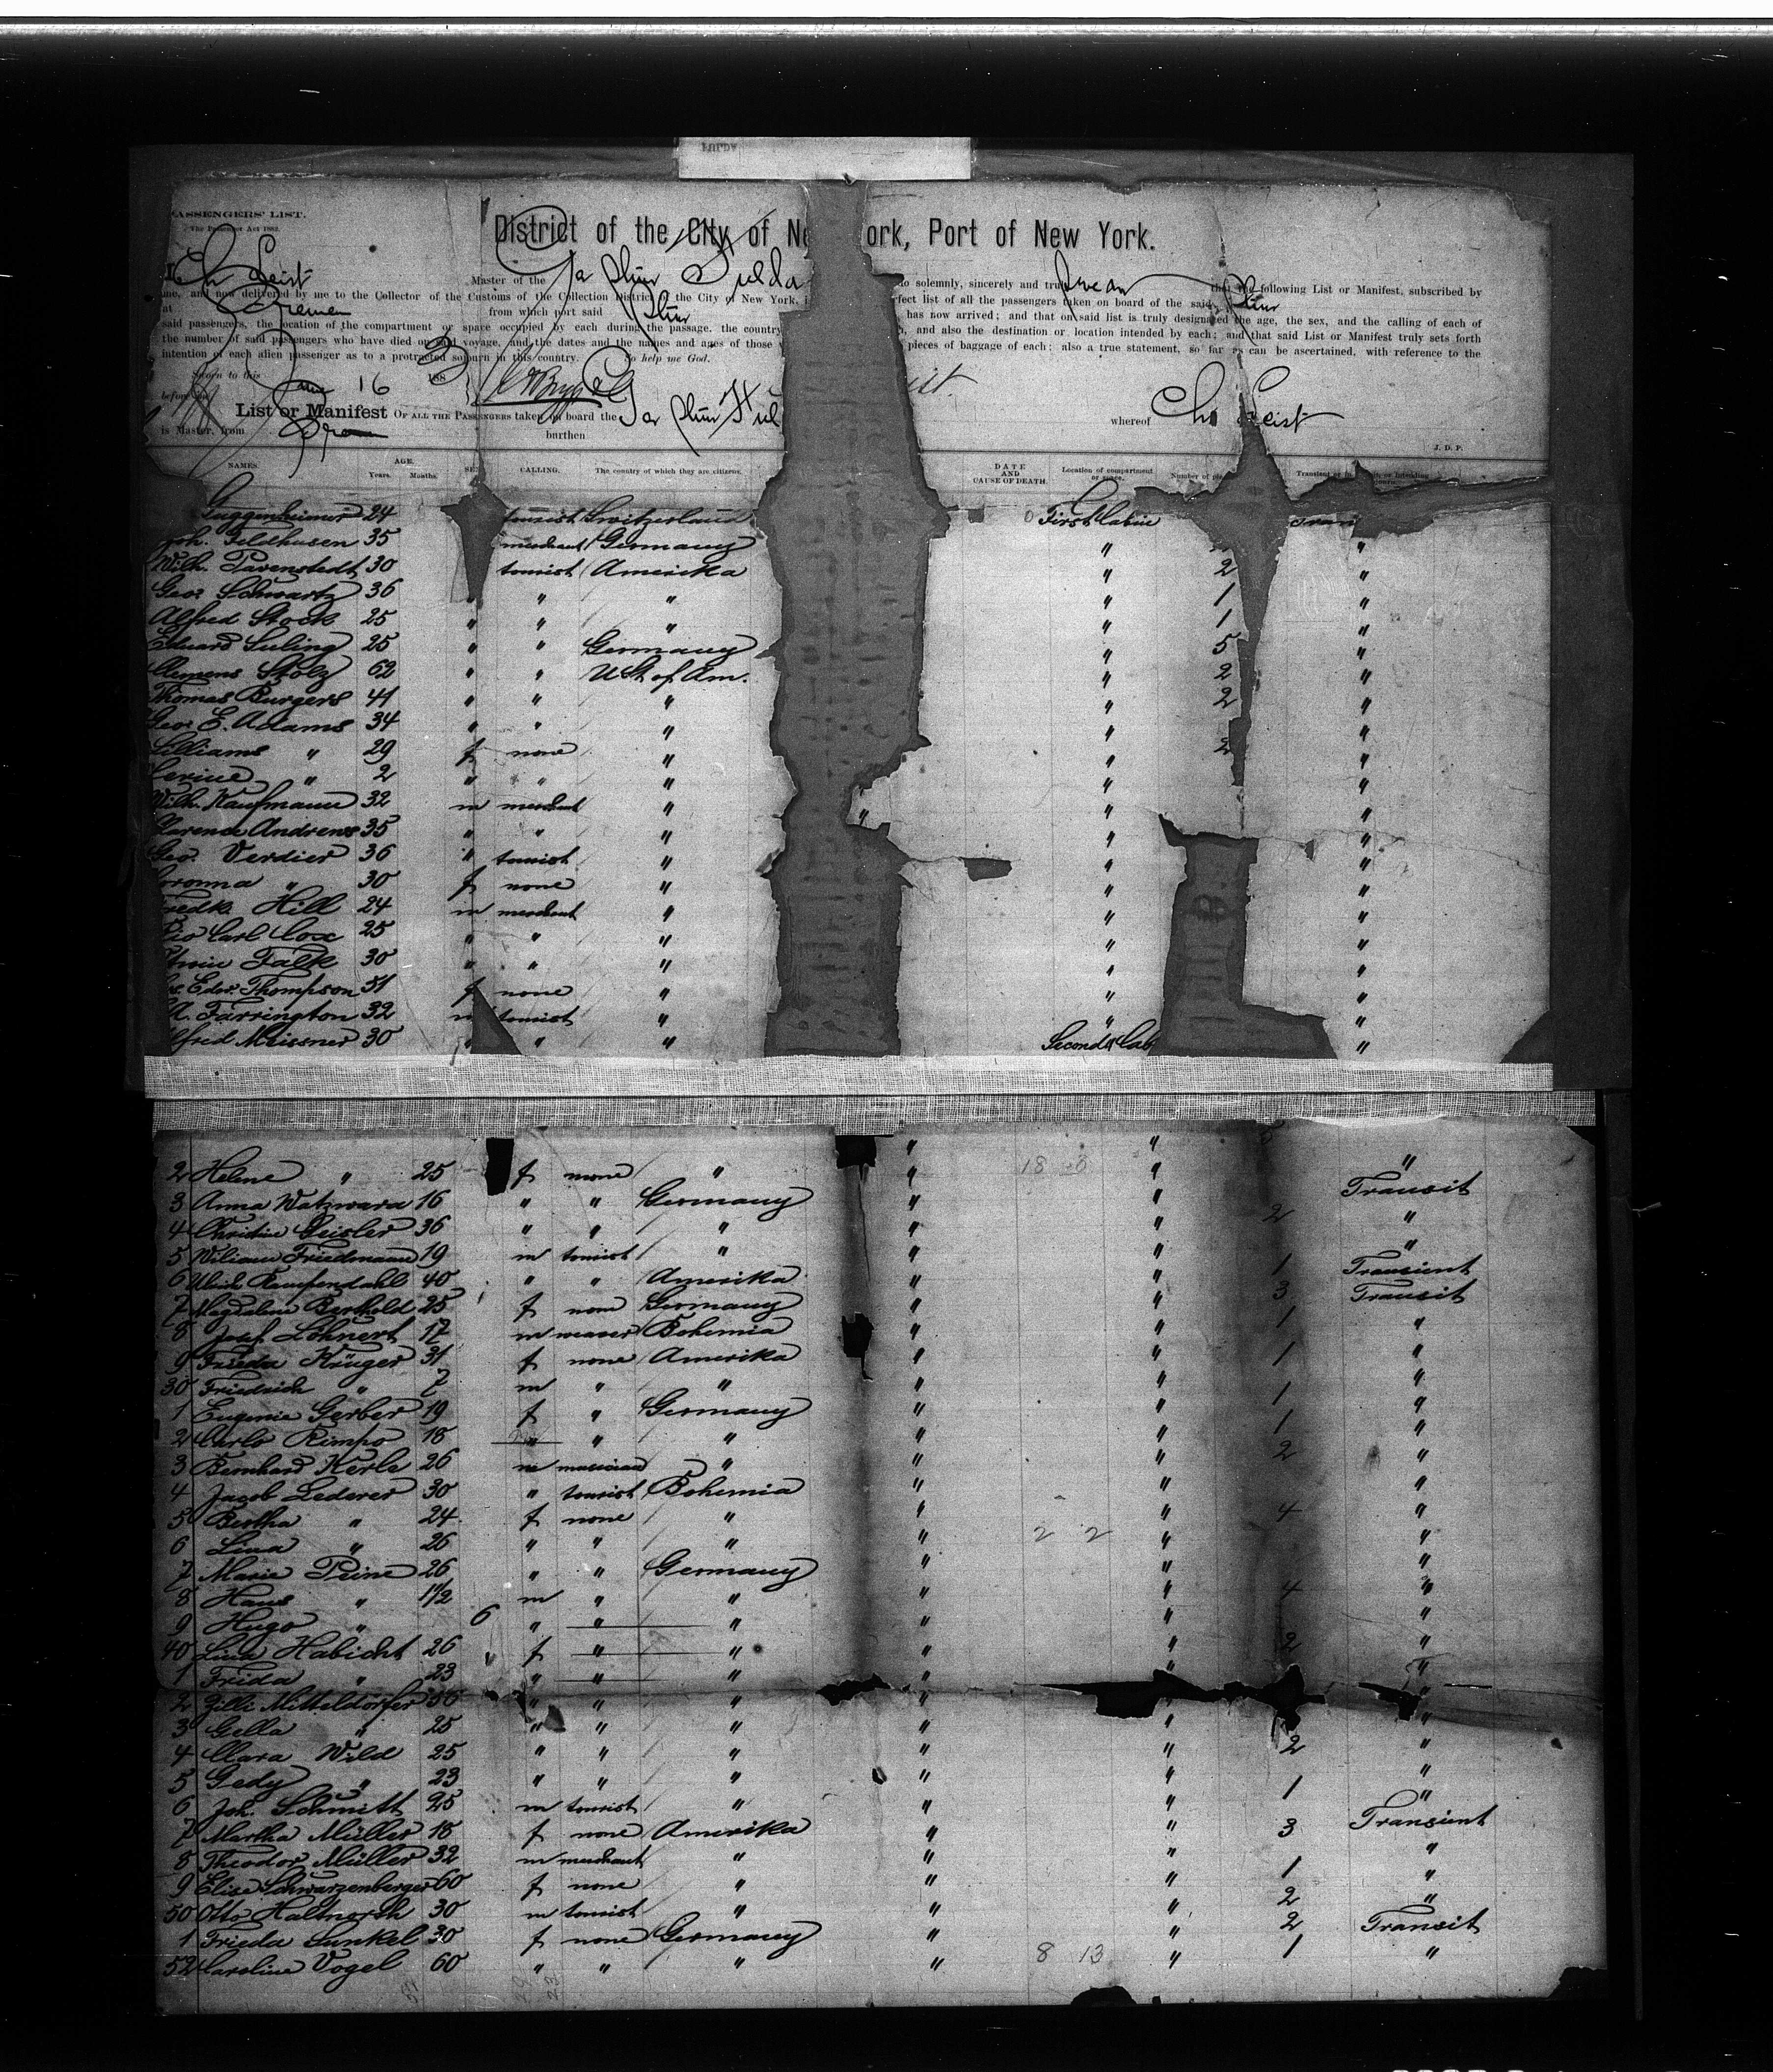 PASSENGERS' LIST.
District of the City of Ne ork, Port of New York.
Ch Leist Master of the Fulda do solemnly, sincerely and truly swear that the following List or Manifest, subscribed by
me, and now delivered by me to the Collector of the Customs of the Collection District of the City of New York, is fect list of all the passengers taken on board of the said
at Bremen from which port said has now arrived; and that on said list is truly designated the age, the sex, and the calling of each of
said passengers, the location of the compartment or space occupied by each during the passage, the country and also the destination or location intended by each; and that said List or Manifest truly sets forth
the number of said passengers who have died on said voyage, and the dates and the names and ages of those pieces of baggage of each; also a true statement, so far as can be ascertained, with reference to the
intention of each alien passenger as to a protracted sojourn in this country. So help me God.
Sworn to this 16 188
before me
List or Manifest OF ALL THE PASSENGERS taken on board the whereof Ch Leist
is Master, from burthen
J. D. P.
NAMES. AGE. Years. Months. SEX. CALLING. The country of which they are citizens. DATE AND CAUSE OF DEATH. Location of compartment or space. Number of
Guggenheimer 24 tourist Switzerland First Cabin
Joh. Geldhusen 35 merchant Germany " "
Wilh. Pavenstedt 30 tourist Amerika " 2 "
Geo. Schwartz 36 " " " " 1 "
Alfred Stock 25 " " " " 1 "
Eduard Suling 25 " " Germany " 5 "
Clemens Stolz 62 " " U St of Am. " 2 "
Thomas Burgers 41 " " " " 2 "
Geo. E. Adams 34 " " " " "
Lilliams " 29 f none " " 2 "
" 2 " " " " "
Wilh. Kaufmann 32 m merchant " " "
Clarence Andrews 35 " " " " "
Geo. Verdier 36 " tourist " " "
" 30 f none " " "
Fredk. Hill 24 m merchant " " "
Carl Cox 25 " " " " "
Falk 30 " " " " "
Edw. Thompson 51 f none " " "
A. Farrington 32 m tourist " " "
Alfred Meissner 30 " " " Second Cab "
2 Helene " 25 f none " " " "
3 Anna Watzwara 16 " " Germany " " Transit
4 Christine Geisler 36 " " " " " 2 "
5 Wiliam Friedmann 19 m tourist " " " "
6 Ulrich Kampendahl 40 " " Amerika " " 1 Transient
7 Magdalene Berthold 25 f none Germany " " 3 Transit
8 Josef Löhnert 17 m weaver Bohemia " " 1 "
9 Frieda Krüger 31 f none Amerika " " 1 "
30 Friedrich " 7 m " " " " "
1 Eugenie Gerber 19 f " Germany " " 1 "
2 Carlo Rimpo 18 " " " " 1 "
3 Bernhard Kerle 26 m musician " " " 2 "
4 Jacob Lederer 30 " tourist Bohemia " " "
5 Bertha " 24 f none " " " 4 "
6 Lina " 26 " " " " 2 2 " "
7 Marie Peine 26 " " Germany " " "
8 Hans " 1 1/2 m " " " " 4 "
9 Hugo " 6 " " " " " "
40 Lina Habicht 26 f " " " " 2 "
1 Frida " 23 " " " " " "
2 Zilli Mitteldorfer " " " " " "
3 Gella " 25 " " " " " "
4 Clara Wild 25 " " " " " 2 "
5 Gedy " 23 " " " " " "
6 Joh. Schmitt 25 m tourist " " " 1 "
7 Martha Müller 18 f none Amerika " " 3 Transient
8 Theodor Müller 32 m merchant " " " "
9 Elise Schwarzenberger 60 f none " " " 1 "
50 Otto Haltnorth 30 m tourist " " " 2 "
1 Frieda Sunkel 30 f none Germany " " 2 Transit
52 Caroline Vogel 60 " " " " 8 13 " 1 "